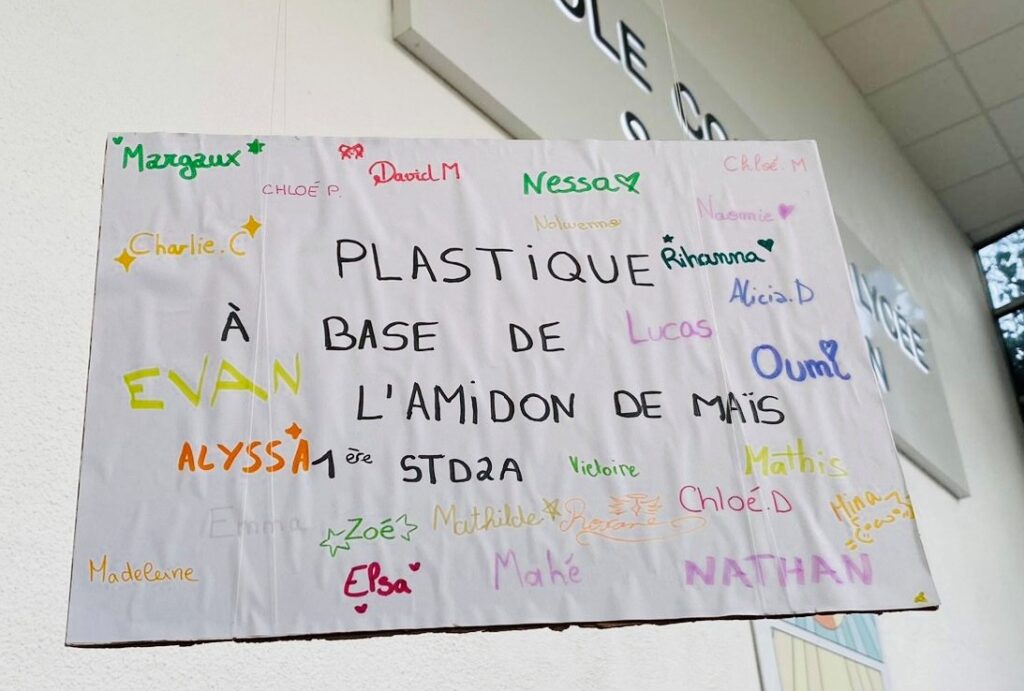 OLE CO
&
Margaux
CHLOÉ P.
David M
Nessa
Chloé. M
Naomie
Nolwenn
Charlie. C
PLASTIQUE
Rihanna
Alicia. D
À BASE DE
Lucas
LYCÉE
N
Oumi
EVAN
L'AMIDON DE MAÏS
ALYSSA
1ère STD2A
Victoire
Mathis
Emma
Zoé
Mathilde
Roxane
Chloé.D
Mina
Madeleine
Elsa
Mahé
NATHAN